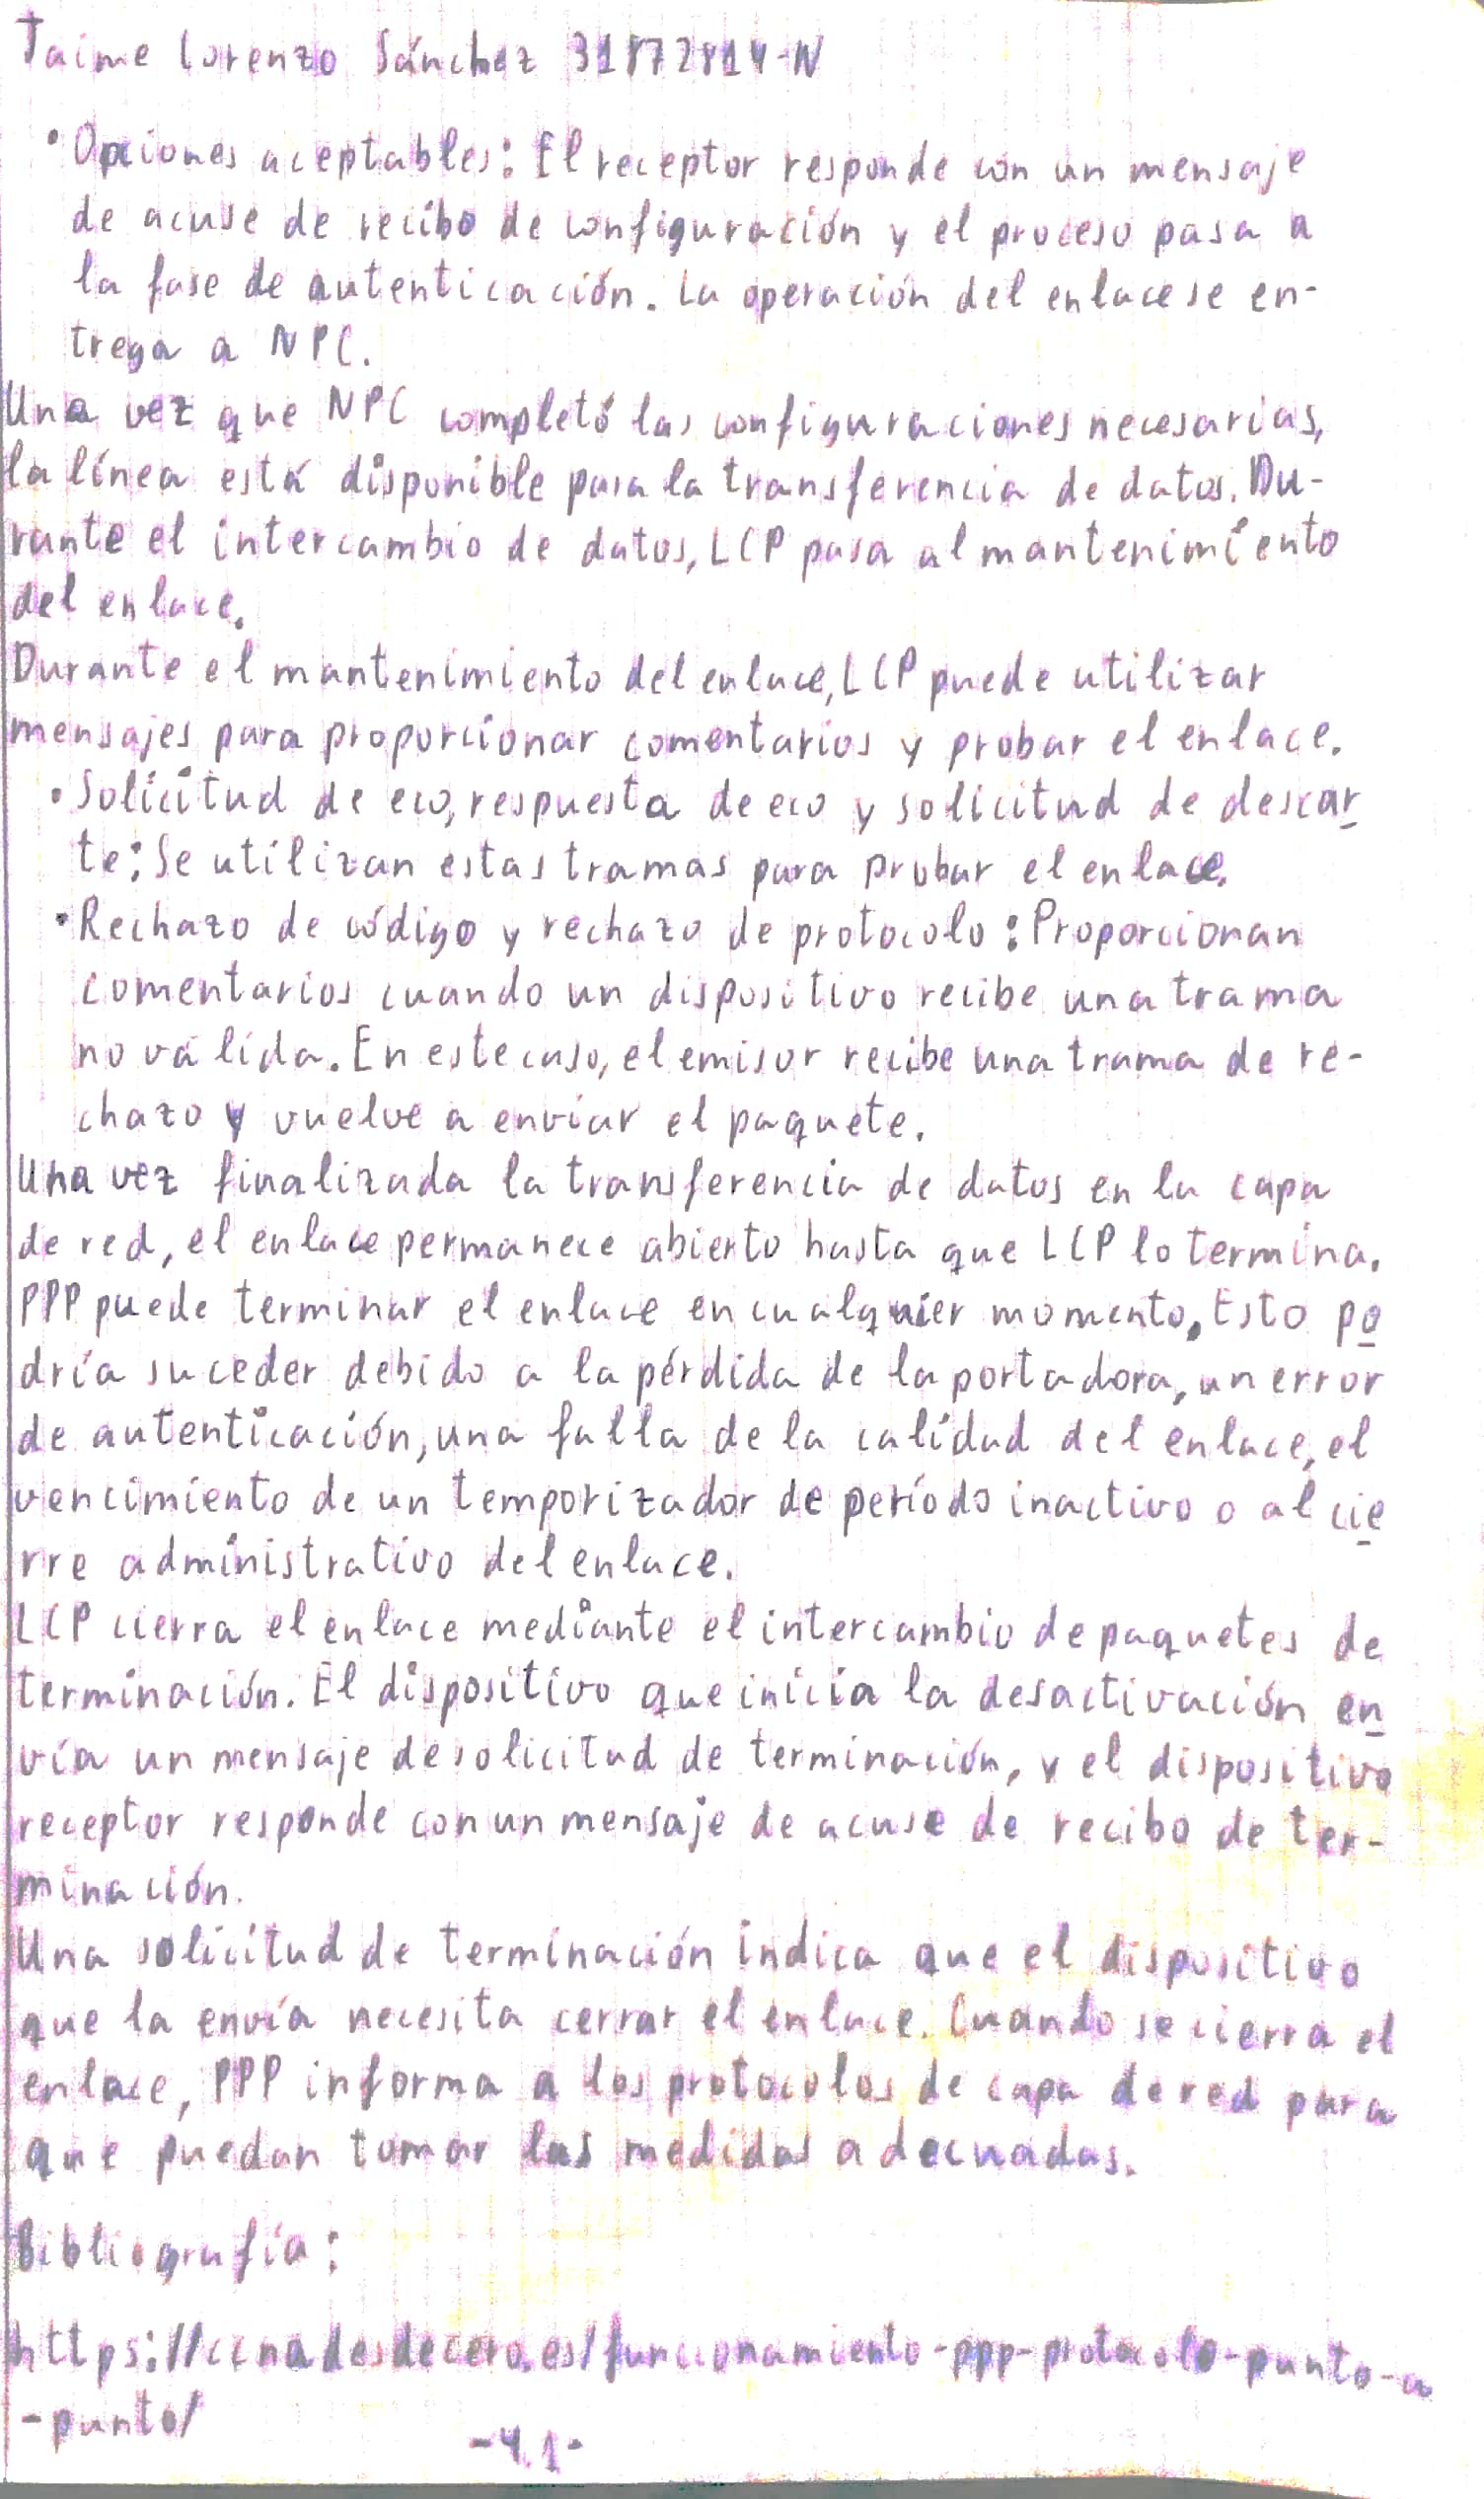 Jaime Lorenzo Sánchez 31872814-N
• Opciones aceptables: El receptor responde con un mensaje
de acuse de recibo de configuración y el proceso pasa a
la fase de autenticación. La operación del enlace se en-
trega a NPC.
Una vez que NPC completó las configuraciones necesarias,
la línea está disponible para la transferencia de datos. Du-
rante el intercambio de datos, LCP pasa al mantenimiento
del enlace.
Durante el mantenimiento del enlace, LCP puede utilizar
mensajes para proporcionar comentarios y probar el enlace.
• Solicitud de eco, respuesta de eco y solicitud de descar
te: Se utilizan estas tramas para probar el enlace.
• Rechazo de código y rechazo de protocolo: Proporcionan
comentarios cuando un dispositivo recibe una trama
no válida. En este caso, el emisor recibe una trama de re-
chazo y vuelve a enviar el paquete.
Una vez finalizada la transferencia de datos en la capa
de red, el enlace permanece abierto hasta que LCP lo termina.
PPP puede terminar el enlace en cualquier momento. Esto po
dría suceder debido a la pérdida de la portadora, un error
de autenticación, una falla de la calidad del enlace, el
vencimiento de un temporizador de período inactivo o al cie
rre administrativo del enlace.
LCP cierra el enlace mediante el intercambio de paquetes de
terminación. El dispositivo que inicia la desactivación en
vía un mensaje de solicitud de terminación, y el dispositivo
receptor responde con un mensaje de acuse de recibo de ter-
minación.
Una solicitud de terminación indica que el dispositivo
que la envía necesita cerrar el enlace. Cuando se cierra el
enlace, PPP informa a los protocolos de capa de red para
que puedan tomar las medidas adecuadas.
Bibliografía:
https://ccnadesdecero.es/funcionamiento-ppp-protocolo-punto-a
-punto/
-4.1-